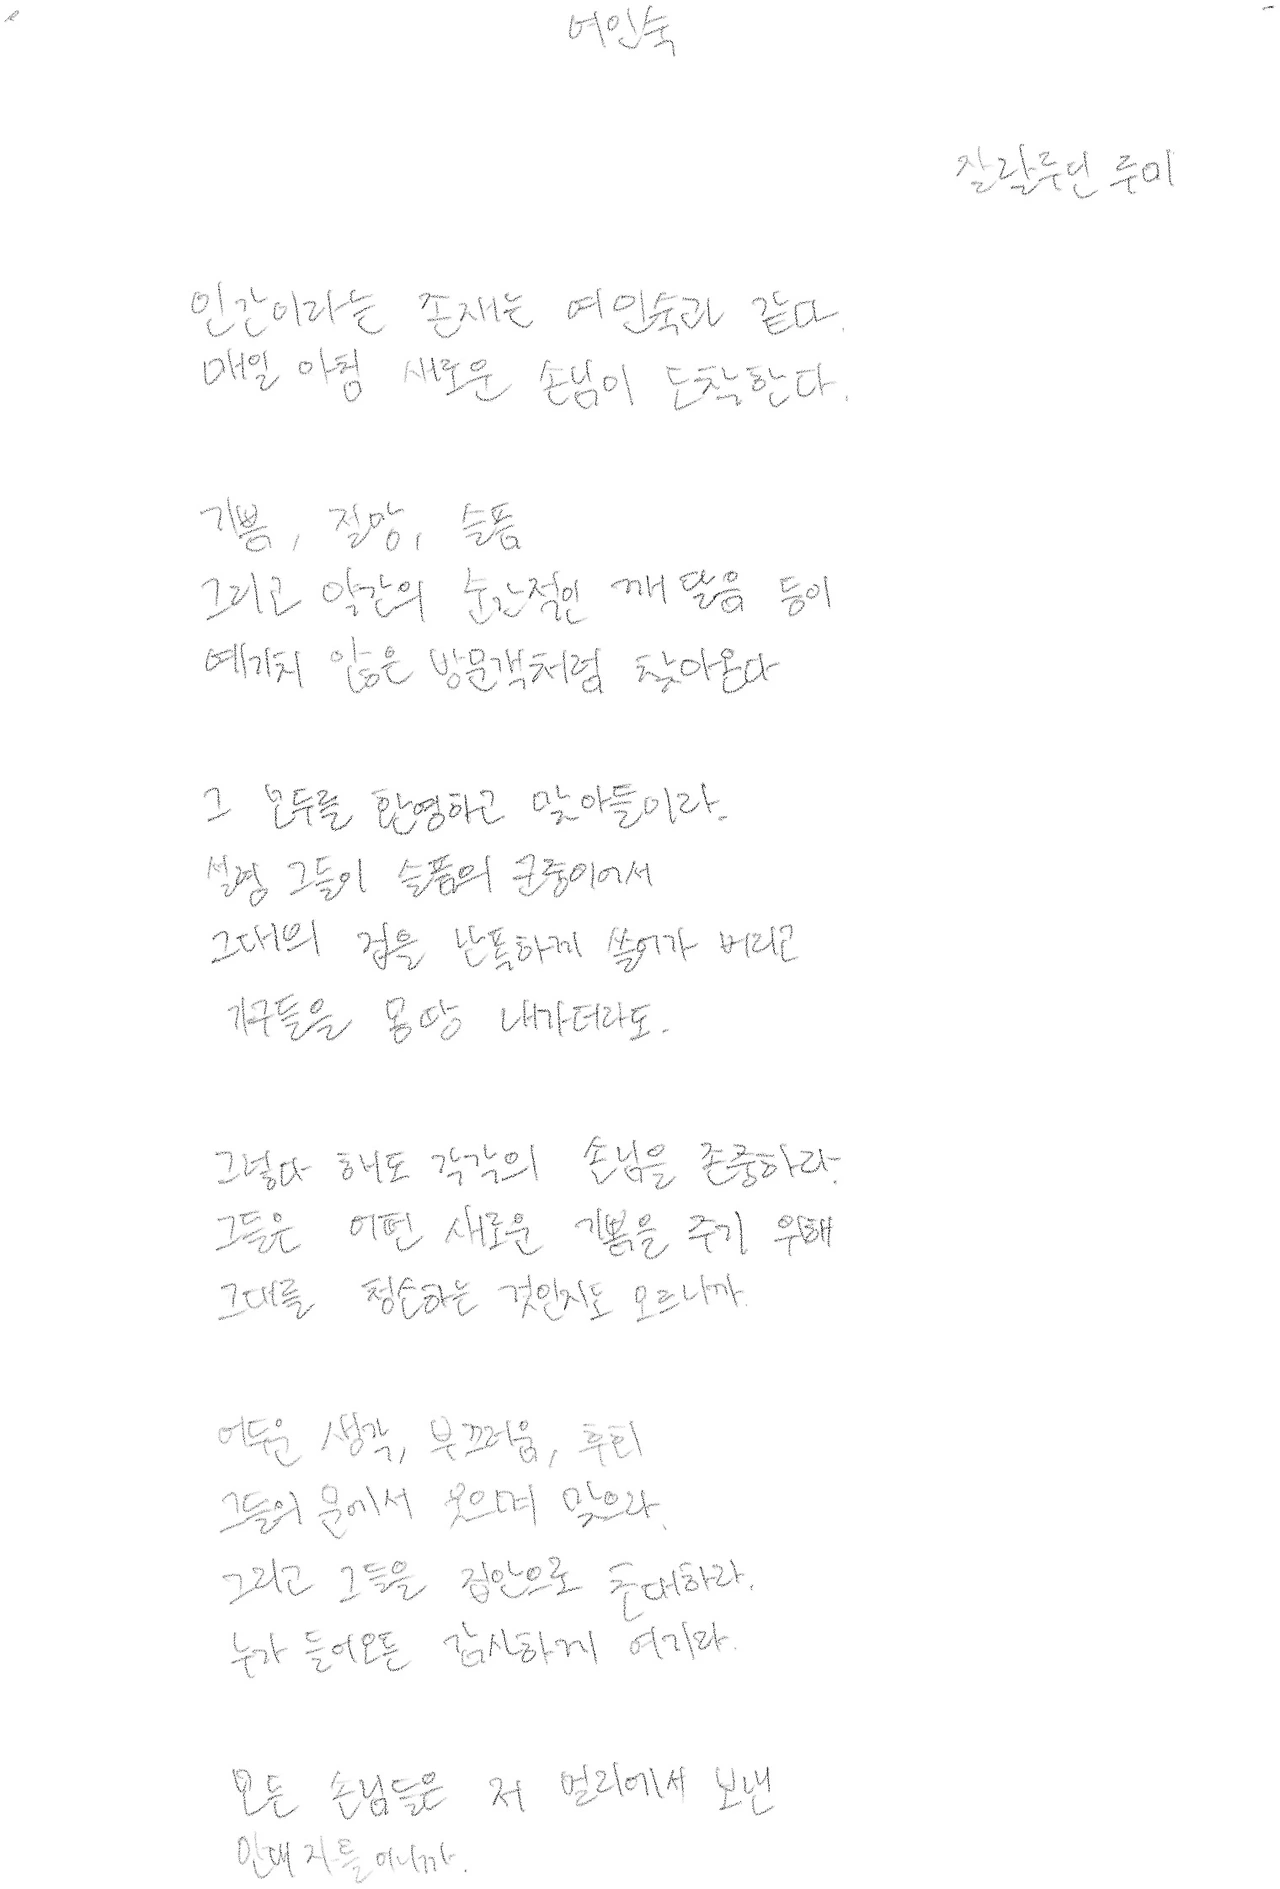 여인숙
잘랄루딘 루미
인간이라는 존재는 여인숙과 같다.
매일 아침 새로운 손님이 도착한다.
기쁨, 절망, 슬픔
그리고 약간의 순간적인 깨달음 등이
예기치 않은 방문객처럼 찾아온다
그 모두를 환영하고 맞아들이라.
설령 그들이 슬픔의 군중이어서
그대의 집을 난폭하게 쓸어가 버리고
가구들을 몽땅 내가더라도.
그렇다 해도 각각의 손님을 존중하라.
그들은 어떤 새로운 기쁨을 주기 위해
그대를 청소하는 것인지도 모르니까.
어두운 생각, 부끄러움, 후회
그들의 문에서 웃으며 맞으라.
그리고 그들을 집안으로 초대하라.
누가 들어오든 감사하게 여기라.
모든 손님들은 저 멀리에서 보낸
안내자들이니까.